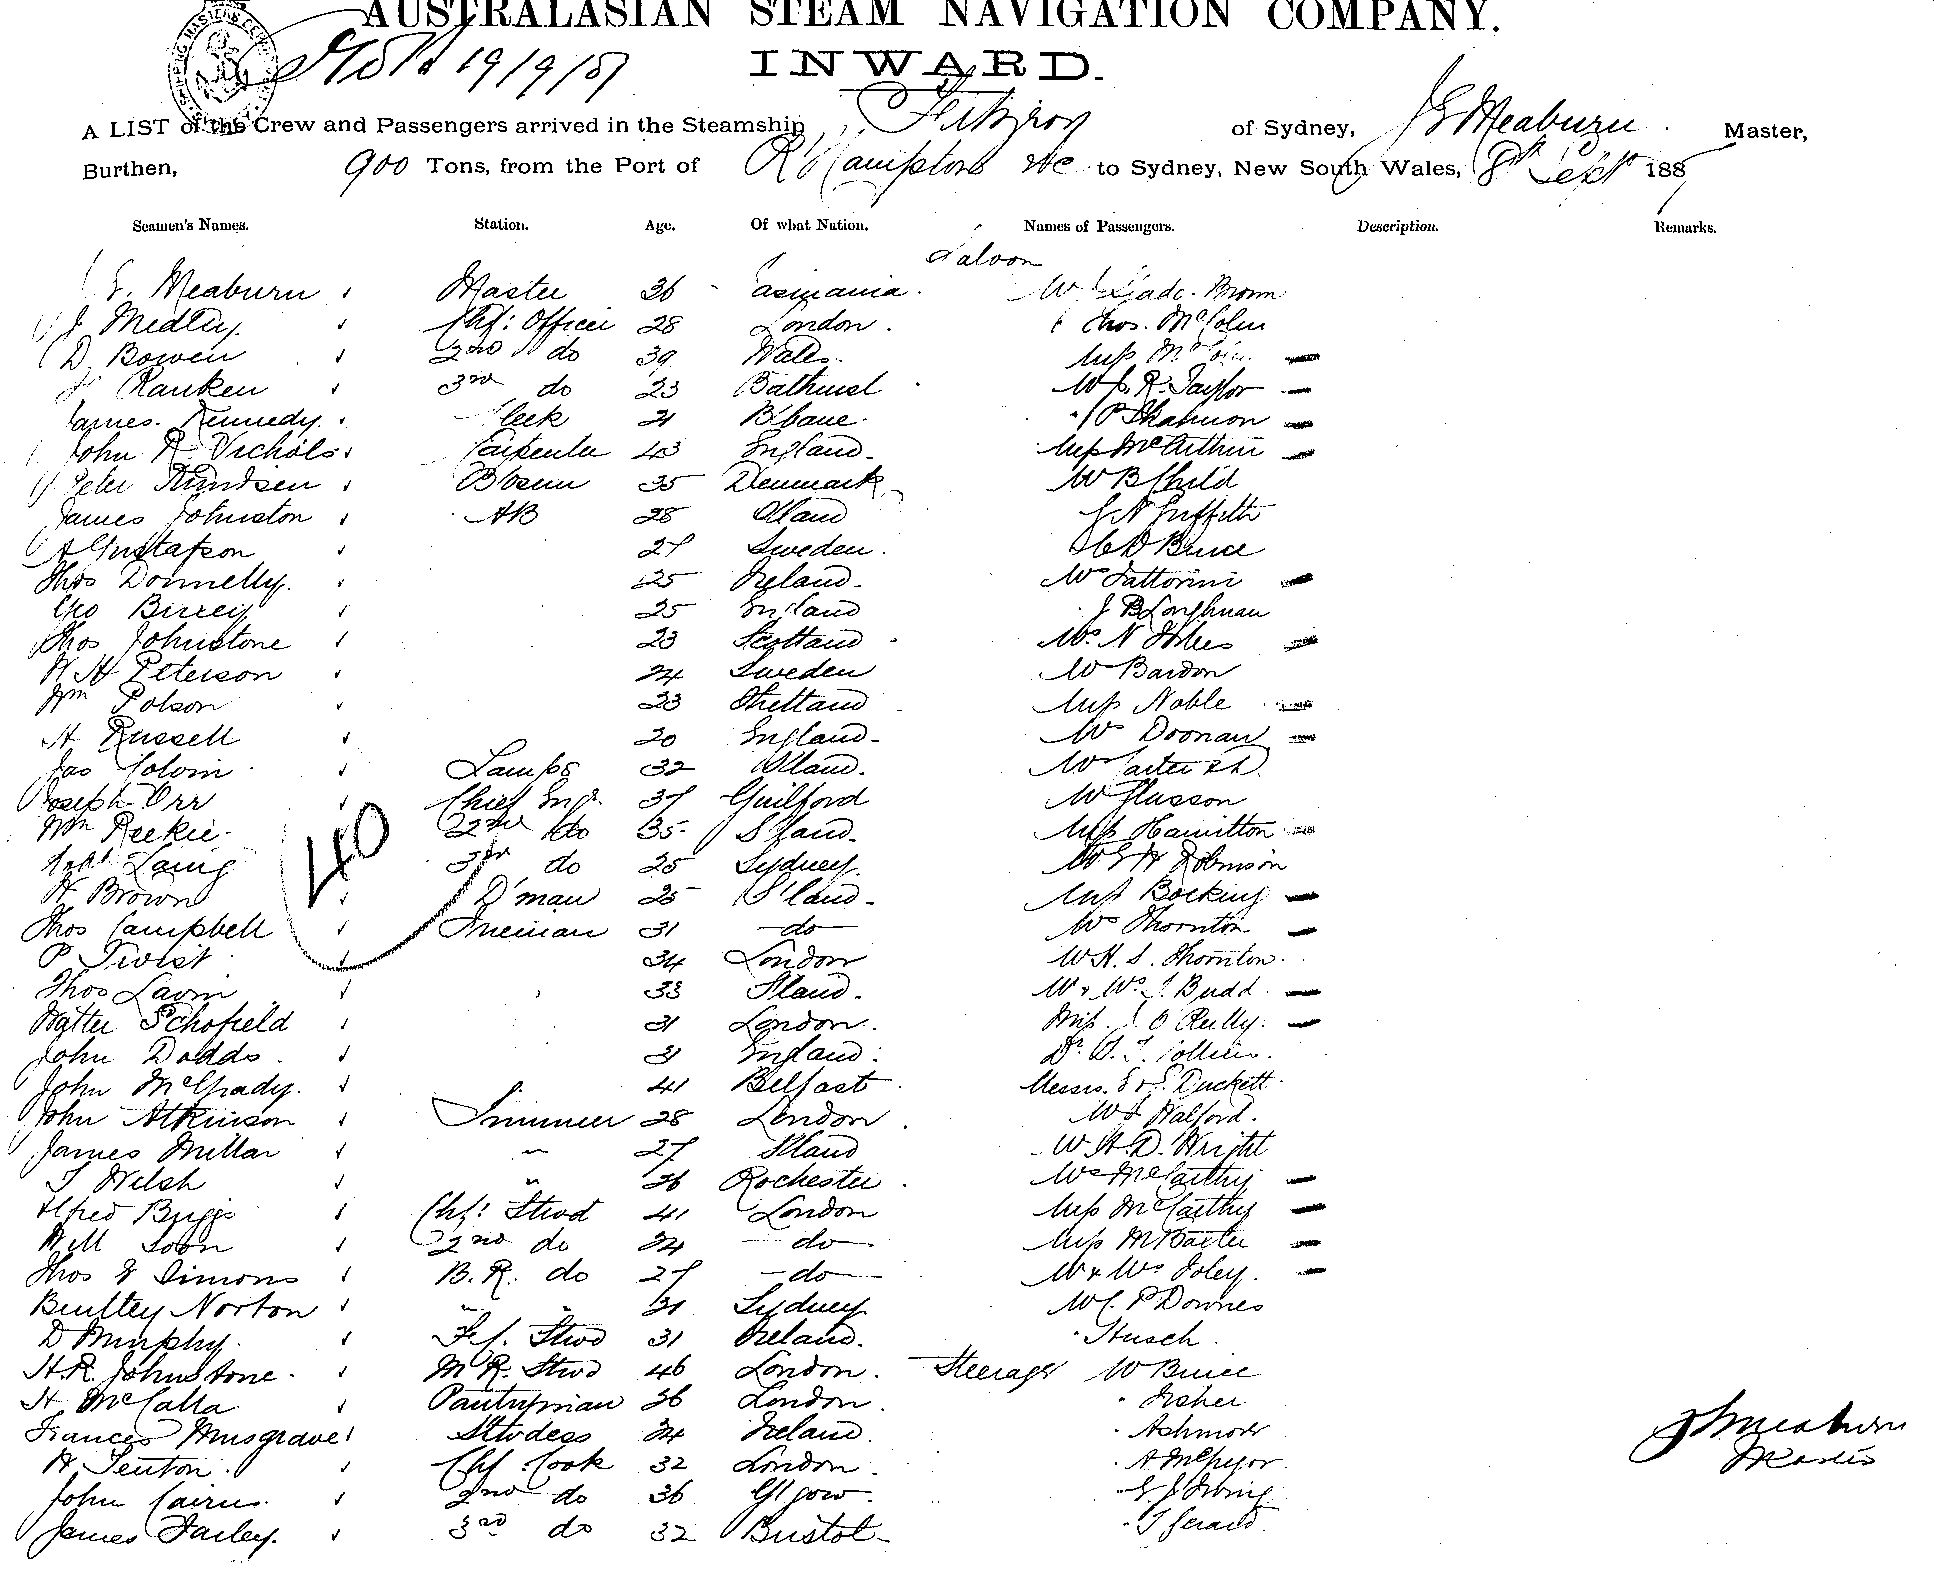 AUSTRALASIAN STEAM NAVIGATION COMPANY.
19/9/87
INWARD.
A LIST of the Crew and Passengers arrived in the Steamship Fitzroy of Sydney, J E Meaburn Master,
Burthen, 900 Tons, from the Port of R'Hampton &c to Sydney, New South Wales, 8th Sept 1887
Seamen's Names. Station. Age. Of what Nation. Names of Passengers. Description. Remarks.
Saloon
E. Meaburn Master 36 Tasmania. Brown
J. Medley Chf: Officer 28 London. Thos. McColm
D. Bowen 2nd do 39 Wales. Miss
Ranken 3rd do 23 Bathurst R. Taylor
James Kennedy. Clerk 21 B'bane. Shannon
John R Nichols Carpenter 43 England. Miss McArthur
Peter Knudsen B'osun 35 Denmark W B Child
James Johnston AB 28 S'land G N Griffith
A Gustafson 27 Sweden. H C D Bruce
Thos Donnelly. 25 Ireland. Mrs Fattorini
Geo Birrey 25 England J B Loughnan
Thos Johnstone 23 Scotland Mrs N
W H Peterson 24 Sweden Mr Bardon
Wm Polson 33 Shetland Miss Noble
H Russell 20 England. Mrs Doonan
Jas Colvin Lamps 32 S'land. Mr Carter
Joseph Orr Chief Engr 37 Guilford Mr Glasson
Wm Reekie. 22nd do 35 S'land. Miss Hamilton
Robt Laing 3rd do 25 Sydney. Mr G H Robinson
H Brown D'man 25 S'land. Miss Bocking
40
Thos Campbell Fireman 31 do Mrs Thornton
P Twist 34 London Mr H. S. Thornton.
Thos Lavin 33 S'land. Mr & Mrs J. Budd.
Walter Schofield 31 London. Miss O'Reilly.
John Dodds. 31 England. Dr. Collins.
John McGrady. 41 Belfast Messrs. E & S. Duckett.
John Atkinson Trimmer 28 London Mr J Walford.
James Millar " 27 S'land Mr H. D. Wright
T Welsh " 26 Rochester Mrs McCarthy
Alfred Briggs Chf: Stwd 41 London Miss McCarthy
Will Soon 2nd do 24 do Miss
Thos E Simons B.R. do 27 do Mr & Mrs Foley.
Bentley Norton " " 31 Sydney Mr C. P Downes
D Murphy. F.C. Stwd 31 Ireland. Husch.
H.R. Johnstone. M R. Stwd 46 London. Steerage Mr Bruce
H. McCalla Pantryman 36 London. " Fisher
Frances Musgrave Stwdess 34 Ireland. " Ashmore
H Fenton. Chf. Cook 32 London. " A McGregor.
John Cairns. 2nd do 36 Gl'gow. " E J Irving
James Farley. 3rd do 32 Bristol. " T Gerard.
J E Meaburn
Master